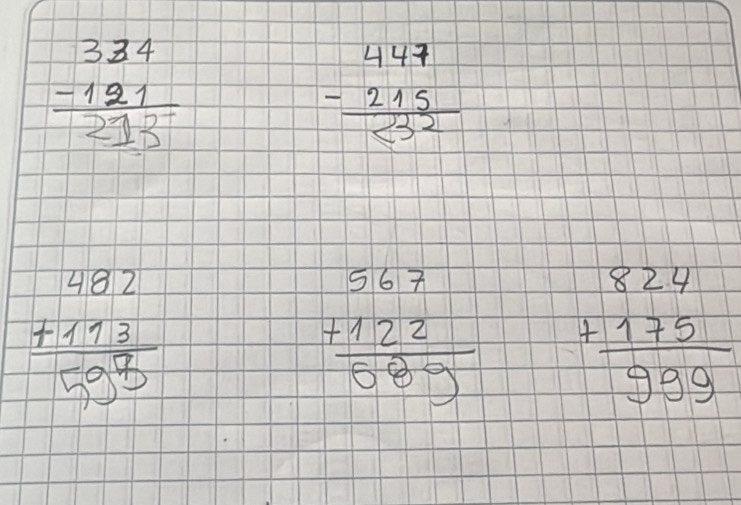 334 447
-121 - 215
213 232
482 567 824
+113 +122 +175
595 689 999